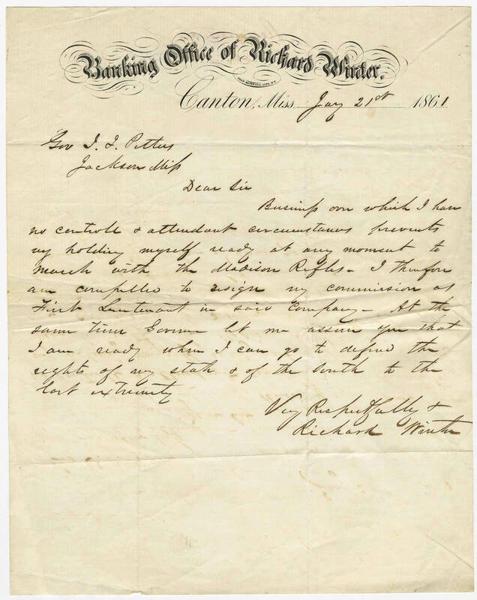 Banking Office of Richard Winter.
Canton, Miss Jany 21st 1861
Gov J. J. Pettus
Jackson Miss
Dear Sir
Business over which I have
no controle & attendant circumstances prevents
my holding myself ready at any moment to
march with the Madison Rifles - I therefore
am compelled to resign my commission as
First Lieutenant in said Company - At the
same time Govnor let me assure you that
I am ready when I can go to defend the
rights of my state & of the South to the
last extremity
Very Respectfully &
Richard Winter